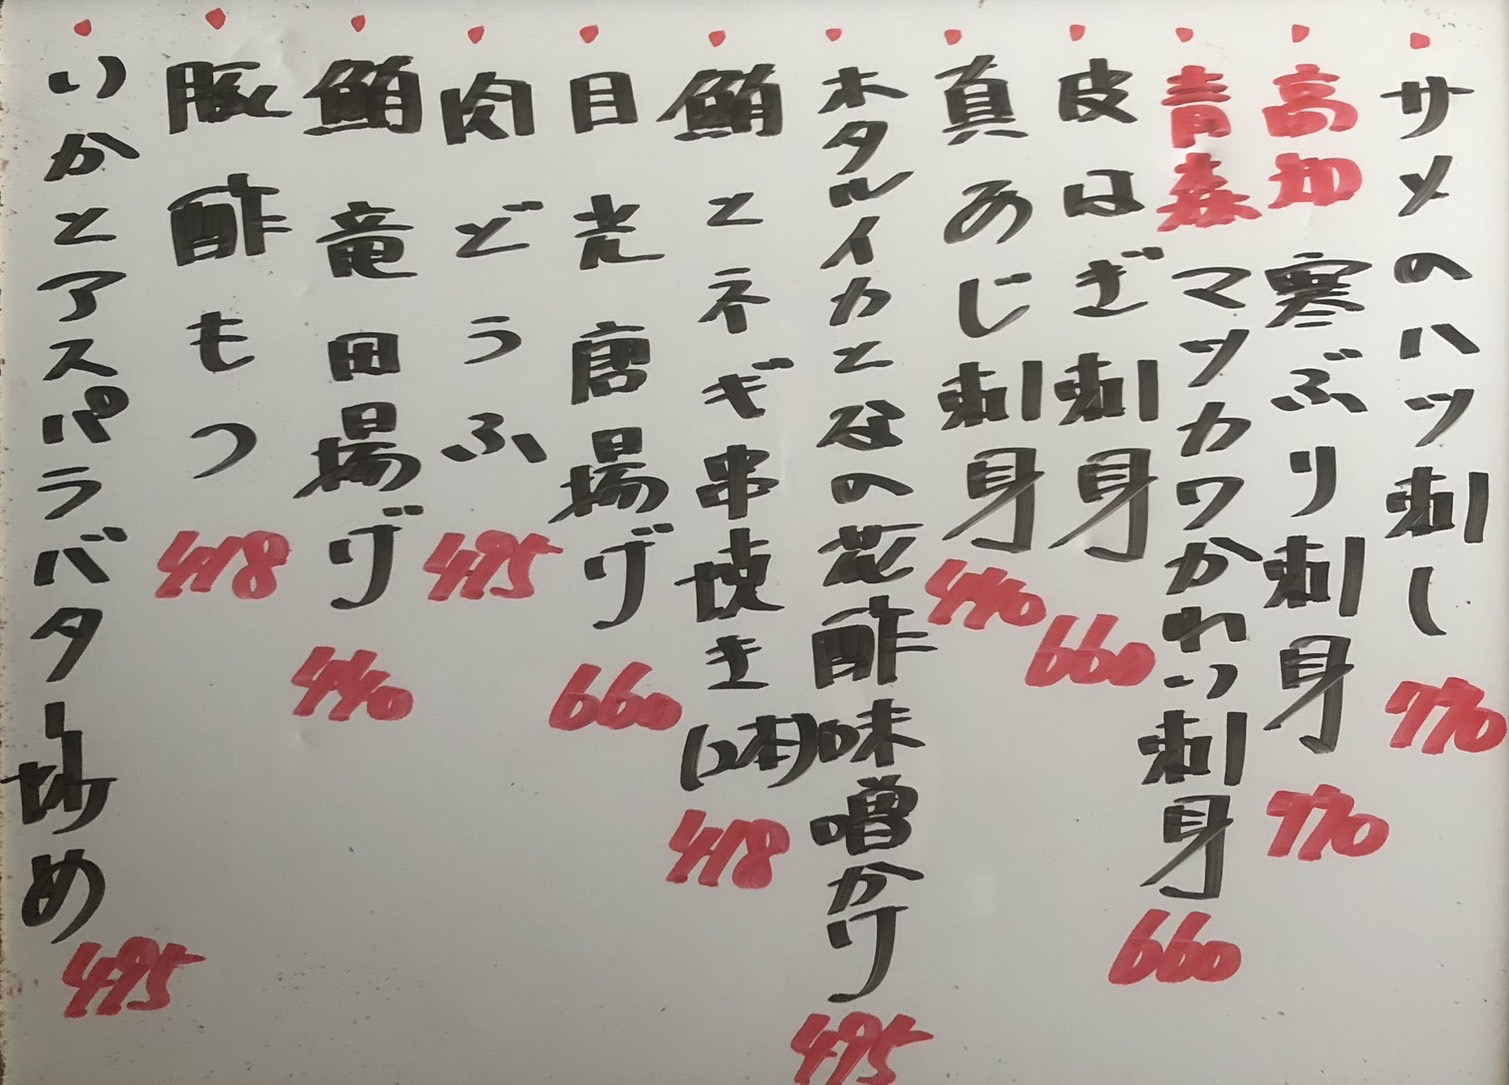 サメのハツ刺し 770
高知 寒ぶり刺身 770
青森 マツカワかれい刺身 660
皮はぎ刺身 660
真あじ刺身 440
ホタルイカとなの花酢味噌かけ 495
鮪とネギ串焼き(2本) 418
目光唐揚げ 660
肉どうふ 495
鮪竜田揚げ 440
豚酢もつ 418
いかとアスパラバター炒め 495